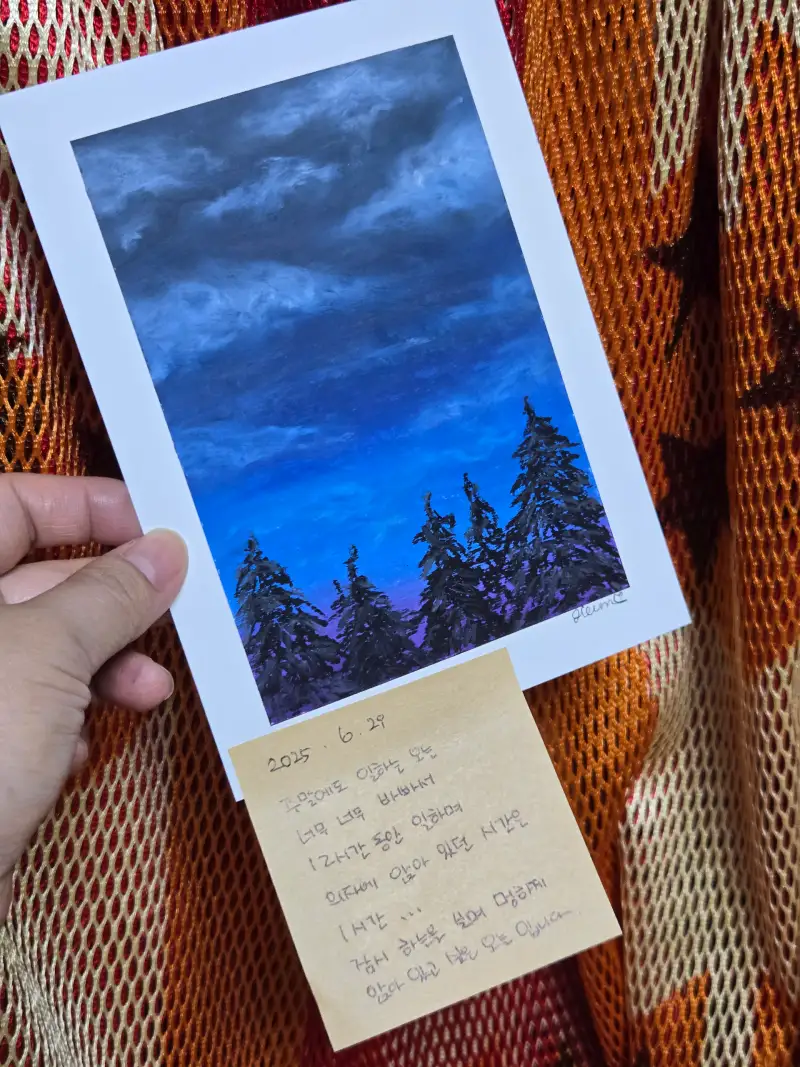 Heim
2025. 6. 29
주말에도 일하는 오늘
너무 너무 바빠서
12시간 동안 일하며
의자에 앉아 있던 시간은
1시간 ...
잠시 하늘을 보며 멍하게
앉아 있고 싶은 오늘 입니다.